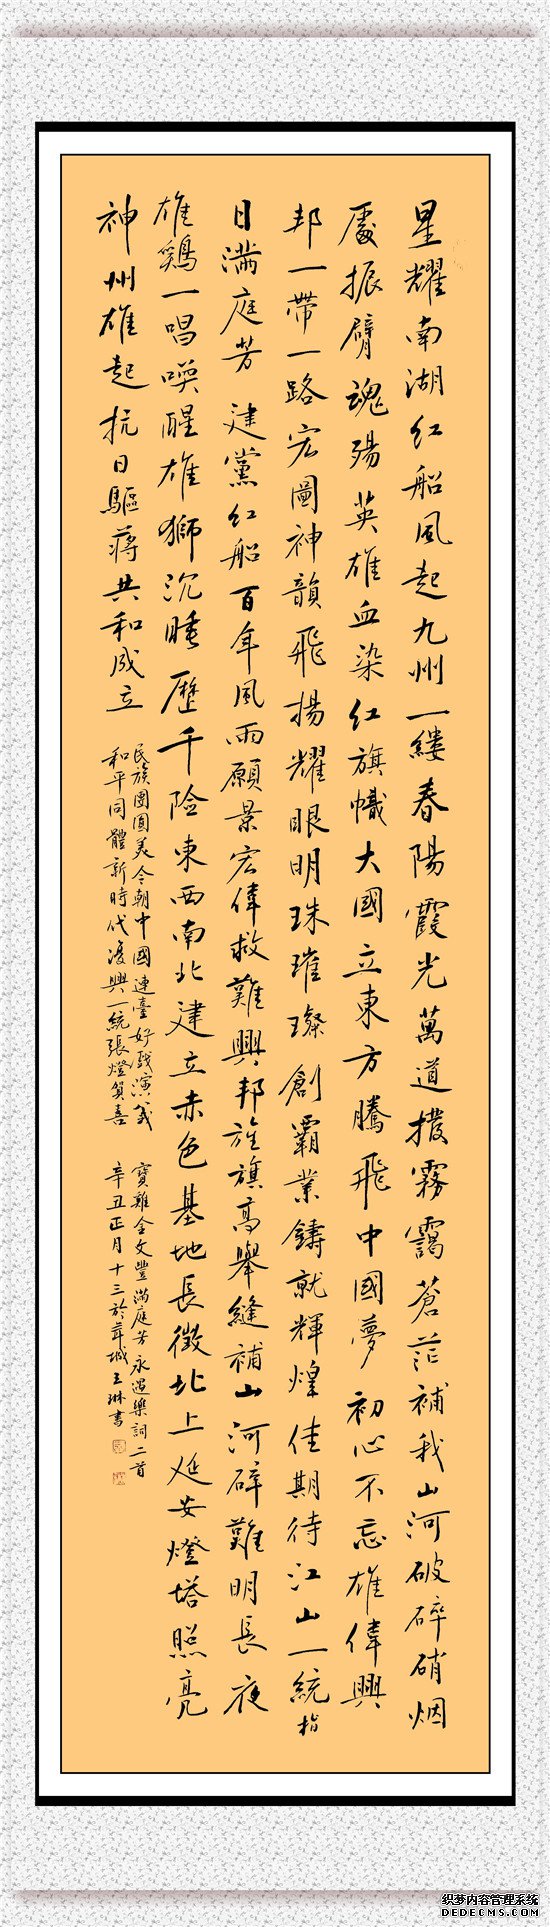 星耀南湖红船風起九州一縷春陽霞光萬道撥霧靄蒼茫補我山河破碎硝烟
處振臂魂殤英雄血染红旗幟大國立東方騰飛中國夢初心不忘雄偉興
邦一帶一路宏圖神韻飛揚耀眼明珠璀璨創霸業鑄就輝煌佳期待江山一統指
日滿庭芳 建黨红船百年風雨願景宏偉救難興邦旌旗高舉縫補山河碎難明長夜
雄鷄一唱喚醒雄獅沉睡歷千險東西南北建立赤色基地長徵北上延安燈塔照亮
神州雄起抗日驅蔣共和成立
民族團圓美今朝中國連臺好戲演義
和平同體新時代復興一統張燈賀喜
寶雞全文豐滿庭芳永遇樂詞二首
辛丑正月十三於
城王琳書
织梦内容管理系统
DEDECMS.COM